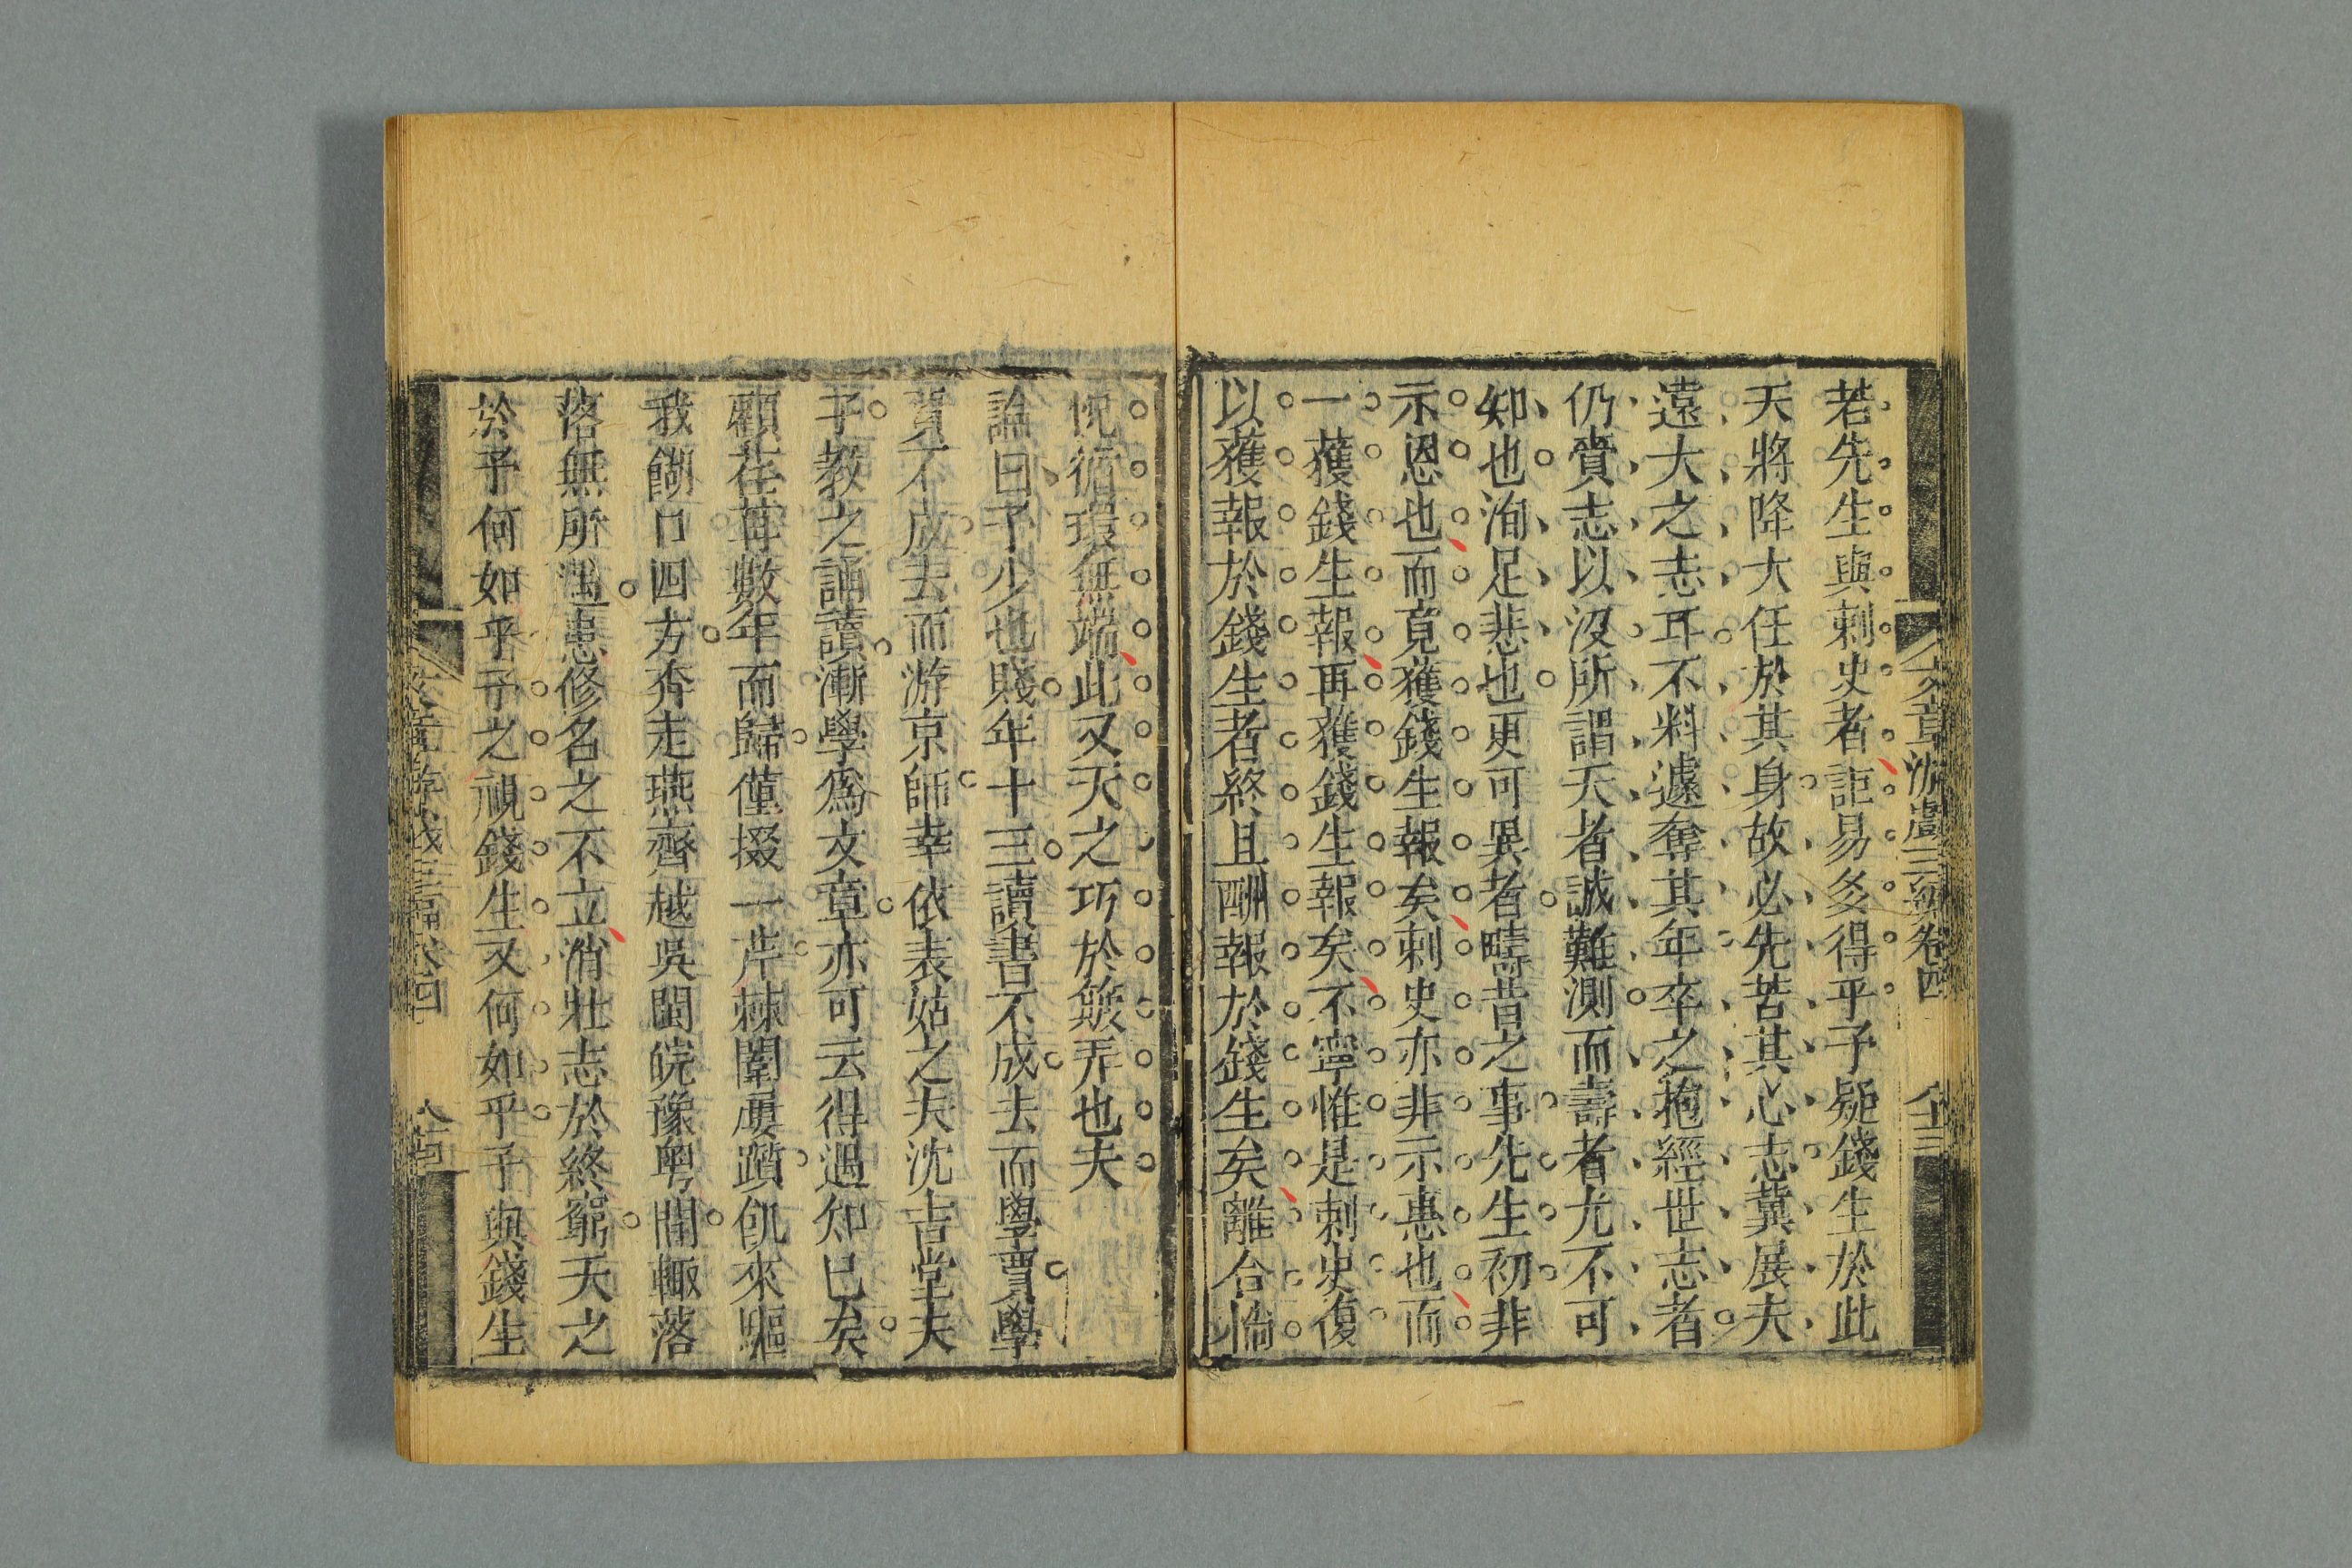 若先生與刺史者詎易多得乎子疑錢生於此
天將降大任於其身故必先苦其心志冀展夫
遠大之志耳不料遽奪其年卒之抱經世志者
仍賫志以沒所謂天者誠難測而壽者尤不可
知也洵足悲也更可異者疇昔之事先生初非
示恩也而竟獲錢生報矣刺史亦非示惠也而
一獲錢生報再獲錢生報矣不寧惟是刺史復
以獲報於錢生者終且酬報於錢生矣離合惝
怳循環無端此又天之巧於簸弄也夫
論曰予少也賤年十三讀書不成去而學賈學
賈不成去而游京師幸依表姑之夫沈吉堂夫
子教之誦讀漸學為文章亦可云得遇知已矣
顧荏苒數年而歸僅掇一芹棘闈屢躓飢來驅
我餬口四方奔走燕齊越吳閩皖豫粵間輒落
落無所遇恚修名之不立消壯志於終窮天之
於予何如乎予之視錢生又何如乎予與錢生